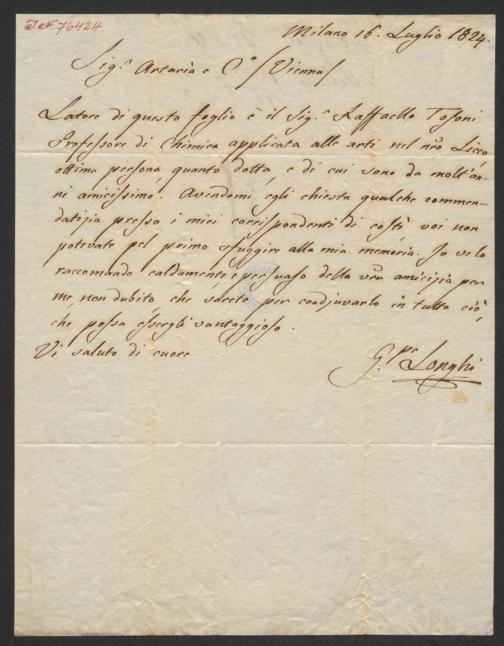 I.N. 76424
Milano 16. Luglio 1824.
Sig.ri Artaria e C.o /Vienna/
Latore di questo foglio è il Sig.r Raffaello Tosoni
Professore di Chimica applicata alle arti nel nro Liceo,
ottima persona quanto dotta, e di cui sono da molt'an-
ni amicissimo. Avendomi egli chiesta qualche commen-
datizia presso i miei corrispondenti di costì voi non
potevate pel primo sfuggire alla mia memoria. Io ve lo
raccomando caldamente e persuaso della vra amicizia per
me non dubito che sarete per coadjuvarlo in tutto ciò,
che possa essergli vantaggioso.
Vi saluto di cuore
G.pe Longhi